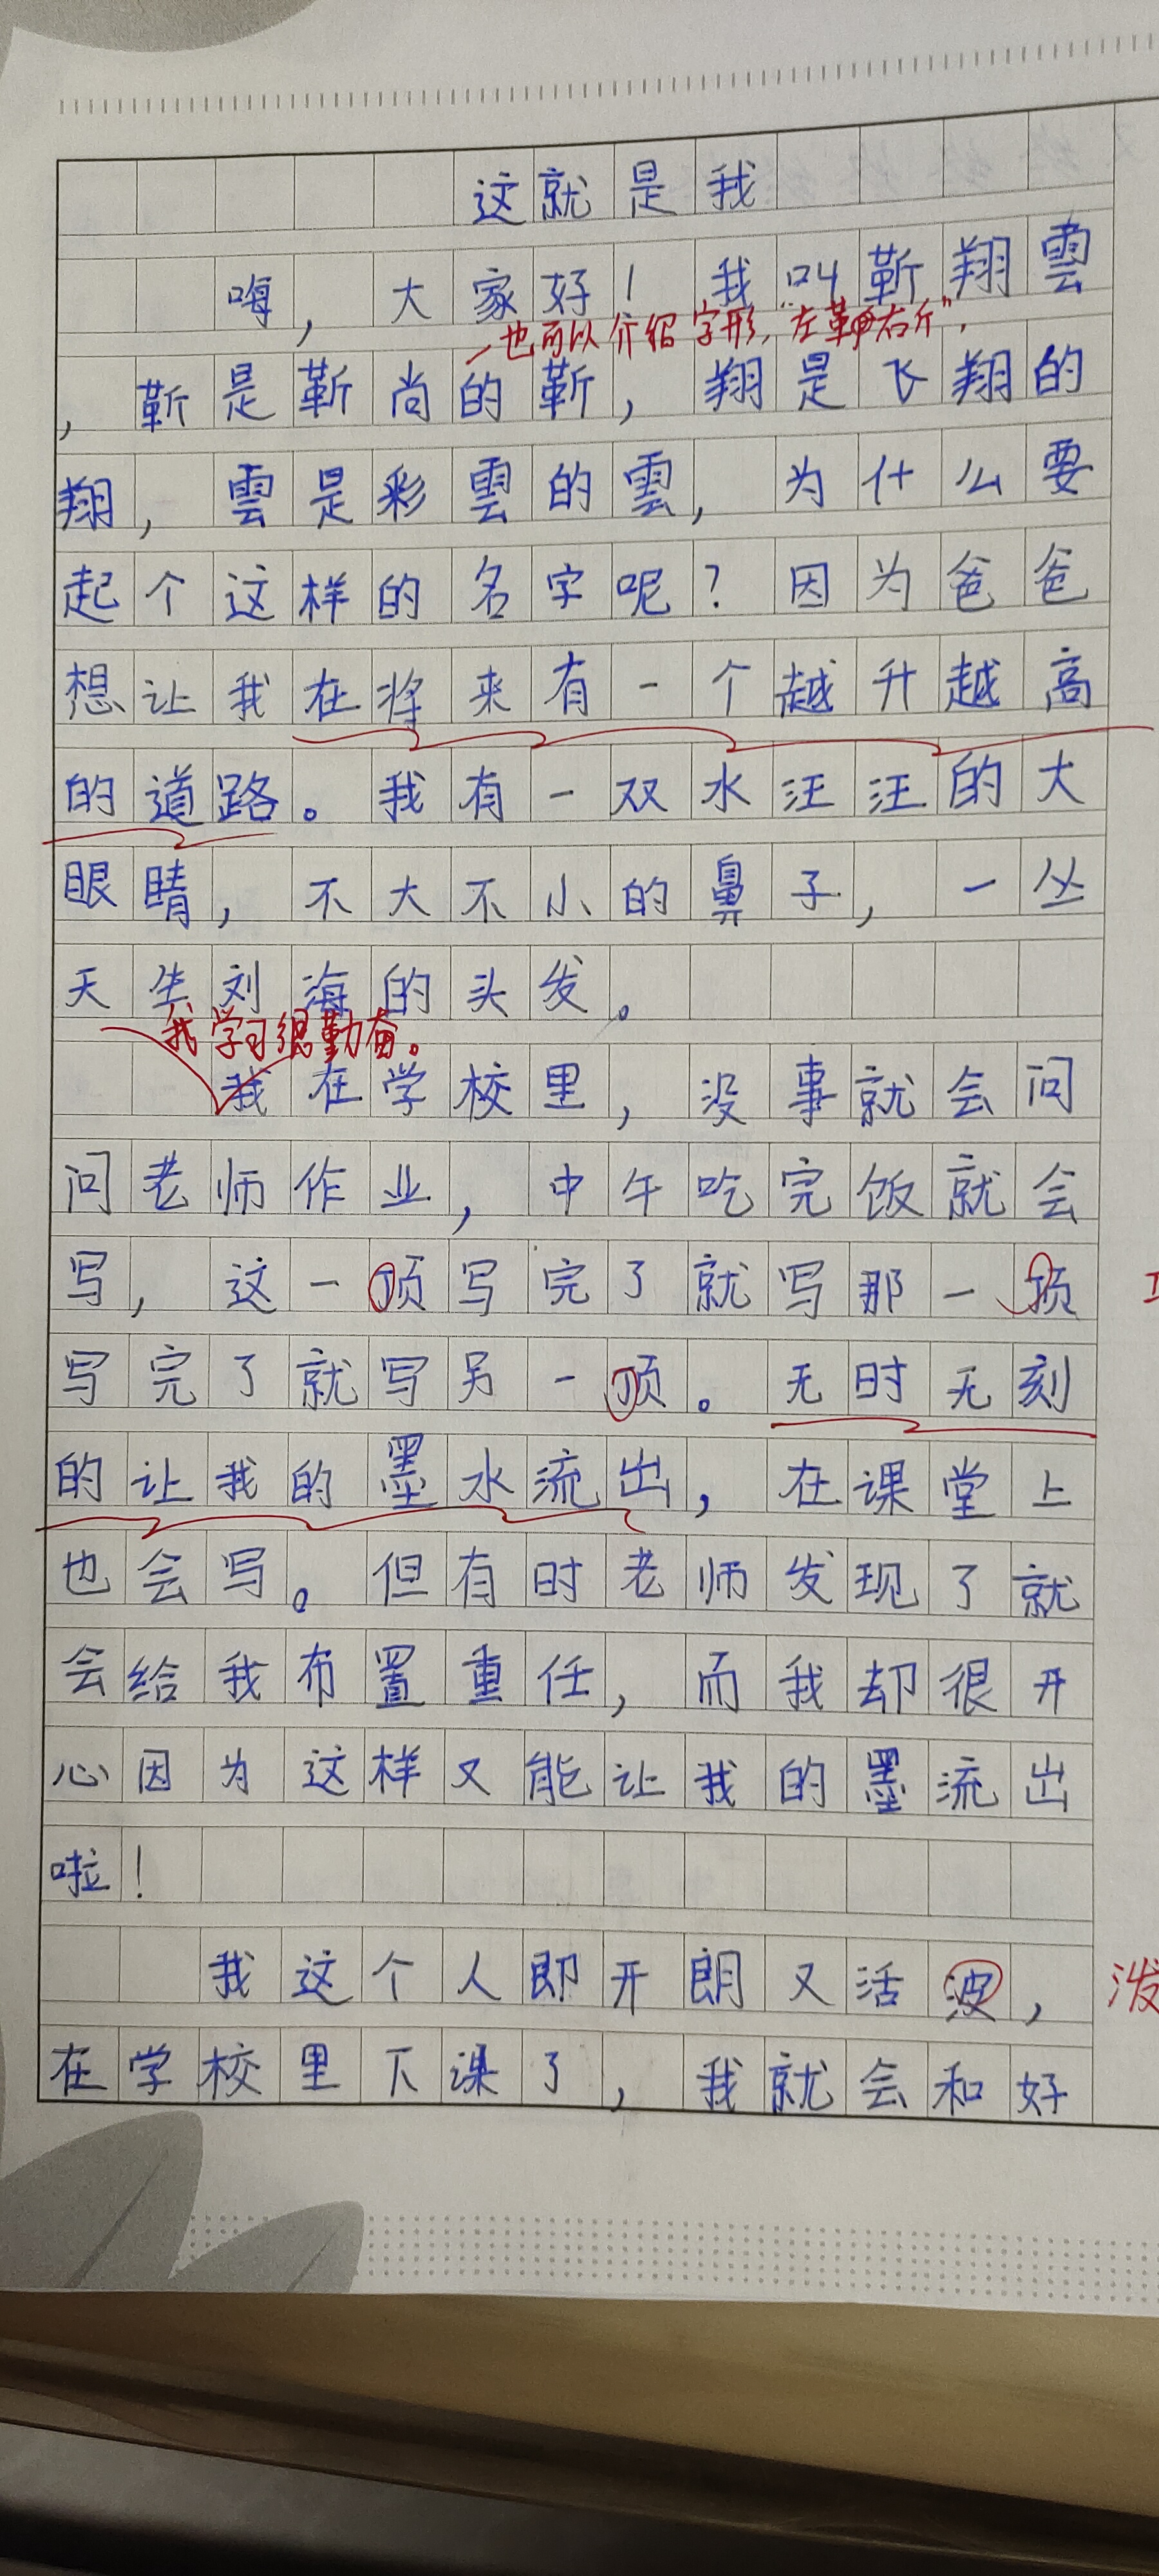 这就是我
嗨，大家好！我叫靳翔雲
一也可以介绍字形，"左革右斤"，
，靳是靳尚的靳，翔是飞翔的
翔，雲是彩雲的雲，为什么要
起个这样的名字呢？因为爸爸
想让我在将来有一个越升越高
的道路。我有一双水汪汪的大
眼睛，不大不小的鼻子，一丛
天生刘海的头发。
我学习很勤奋。
我在学校里，没事就会问
问老师作业，中午吃完饭就会
写，这一顶写完了就写那一顶
写完了就写另一顶。无时无刻
的让我的墨水流出，在课堂上
也会写。但有时老师发现了就
会给我布置重任，而我却很开
心因为这样又能让我的墨流出
啦！
我这个人即开朗又活波， 泼
在学校里下课了，我就会和好